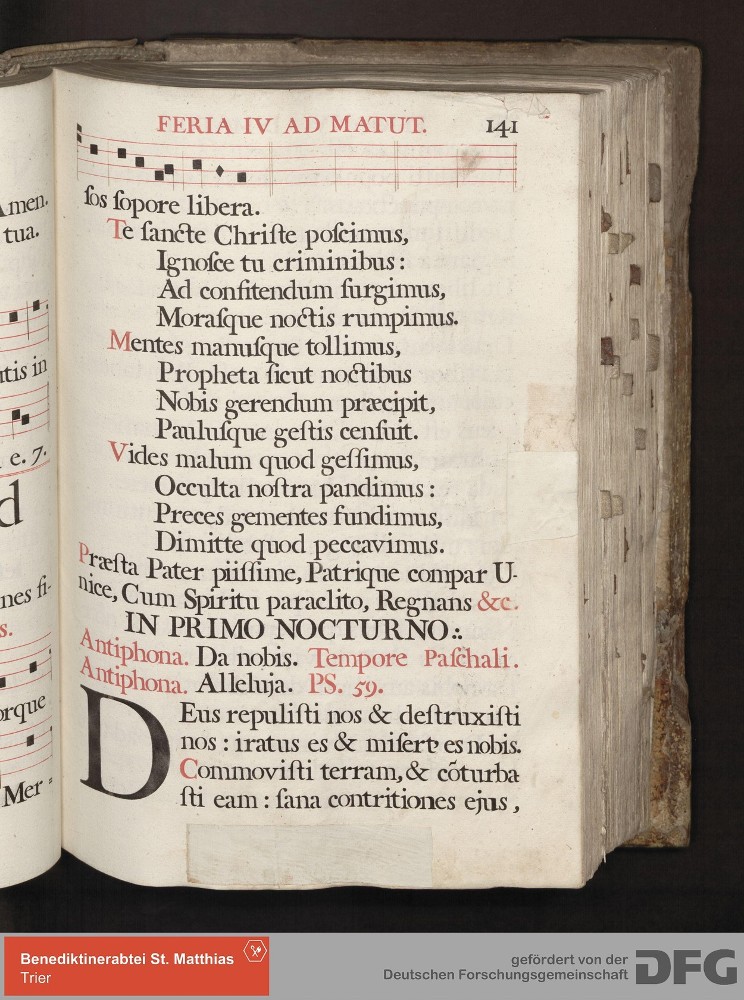 Amen.
tua.
utis in
e. 7.
d
nes fi-
s.
orque
Mer =
FERIA IV AD MATUT. 141
ſos ſopore libera.
Te ſancte Chriſte poſcimus,
Ignoſce tu criminibus :
Ad confitendum ſurgimus,
Moraſque noctis rumpimus.
Mentes manuſque tollimus,
Propheta ſicut noctibus
Nobis gerendum præcipit,
Pauluſque geſtis cenſuit.
Vides malum quod geſſimus,
Occulta noſtra pandimus :
Preces gementes fundimus,
Dimitte quod peccavimus.
Præſta Pater piiſſime, Patrique compar U-
nice, Cum Spiritu paraclito, Regnans &c.
IN PRIMO NOCTURNO :.
Antiphona. Da nobis. Tempore Paſchali.
Antiphona. Alleluja. PS. 59.
Deus repuliſti nos & deſtruxiſti
nos : iratus es & miſert9 es nobis.
Commoviſti terram, & cõturba
ſti eam : ſana contritiones ejus,
Benediktinerabtei St. Matthias
Trier
gefördert von der
Deutschen Forschungsgemeinschaft
DFG